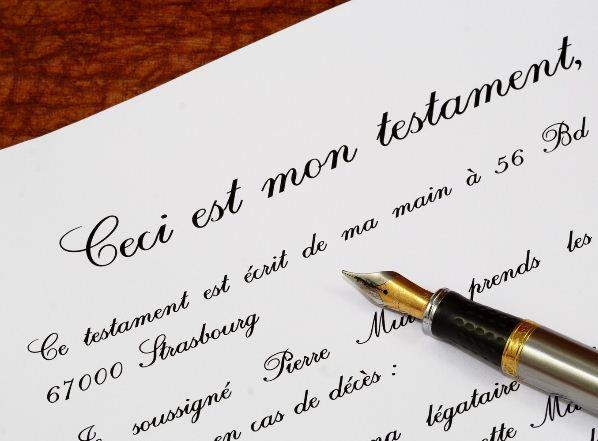 Ceci est mon testament,
Ce testament est écrit de ma main à 56 Bd
67000 Strasbourg
soussigné Pierre prends les
en cas de décès :
légataire